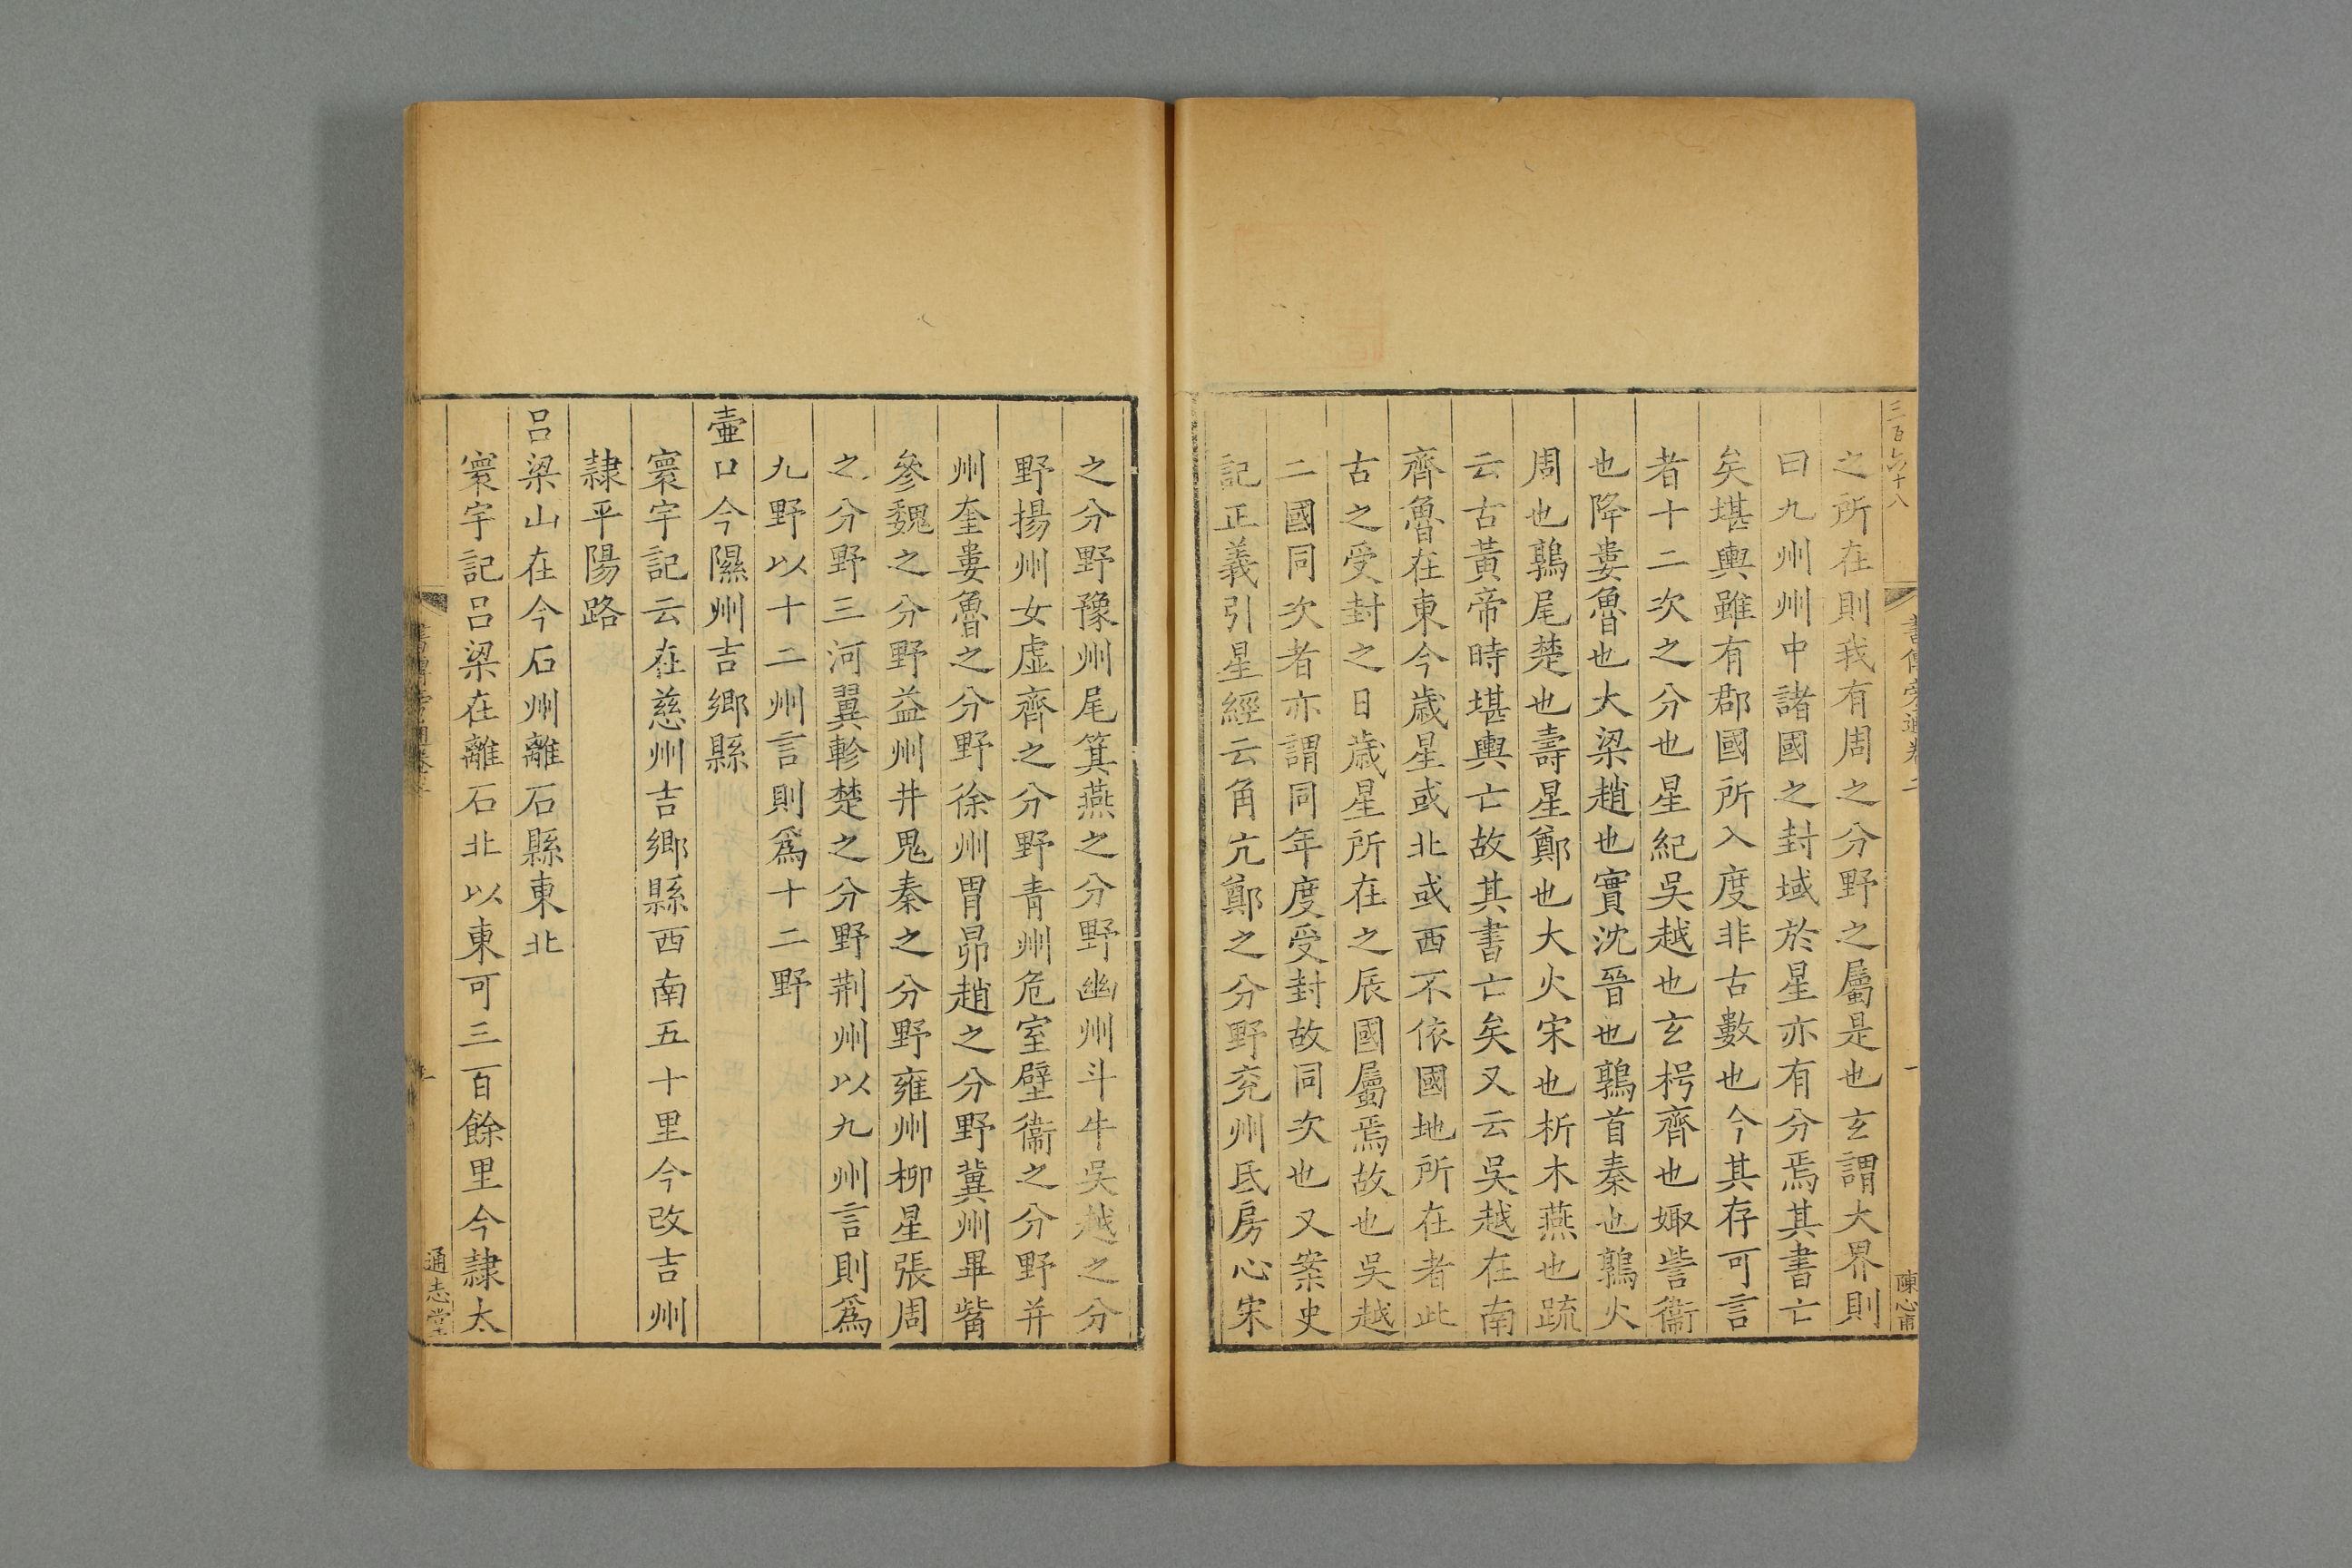 三百六十八
書傳旁通卷二
一
陳心甫
之所在則我有周之分野之屬是也玄謂大界則
曰九州州中諸國之封域於星亦有分焉其書亡
矣堪輿雖有郡國所入度非古數也今其存可言
者十二次之分也星紀吳越也玄枵齊也娵訾衞
也降婁魯也大梁趙也實沈晉也鶉首秦也鶉火
周也鶉尾楚也壽星鄭也大火宋也析木燕也疏
云古黃帝時堪輿亡故其書亡矣又云吳越在南
齊魯在東今歲星或北或西不依國地所在者此
古之受封之日歲星所在之辰國屬焉故也吳越
二國同次者亦謂同年度受封故同次也又案史
記正義引星經云角亢鄭之分野兖州氐房心宋
之分野豫州尾箕燕之分野幽州斗牛吳越之分
野揚州女虛齊之分野青州危室壁衞之分野并
州奎婁魯之分野徐州胃昴趙之分野冀州畢觜
參魏之分野益州井鬼秦之分野雍州柳星張周
之分野三河翼軫楚之分野荆州以九州言則爲
九野以十二州言則爲十二野
壺口今隰州吉鄉縣
寰宇記云在慈州吉鄉縣西南五十里今改吉州
隷平陽路
呂梁山在今石州離石縣東北
寰宇記呂梁在離石北以東可三百餘里今隷太
通志堂